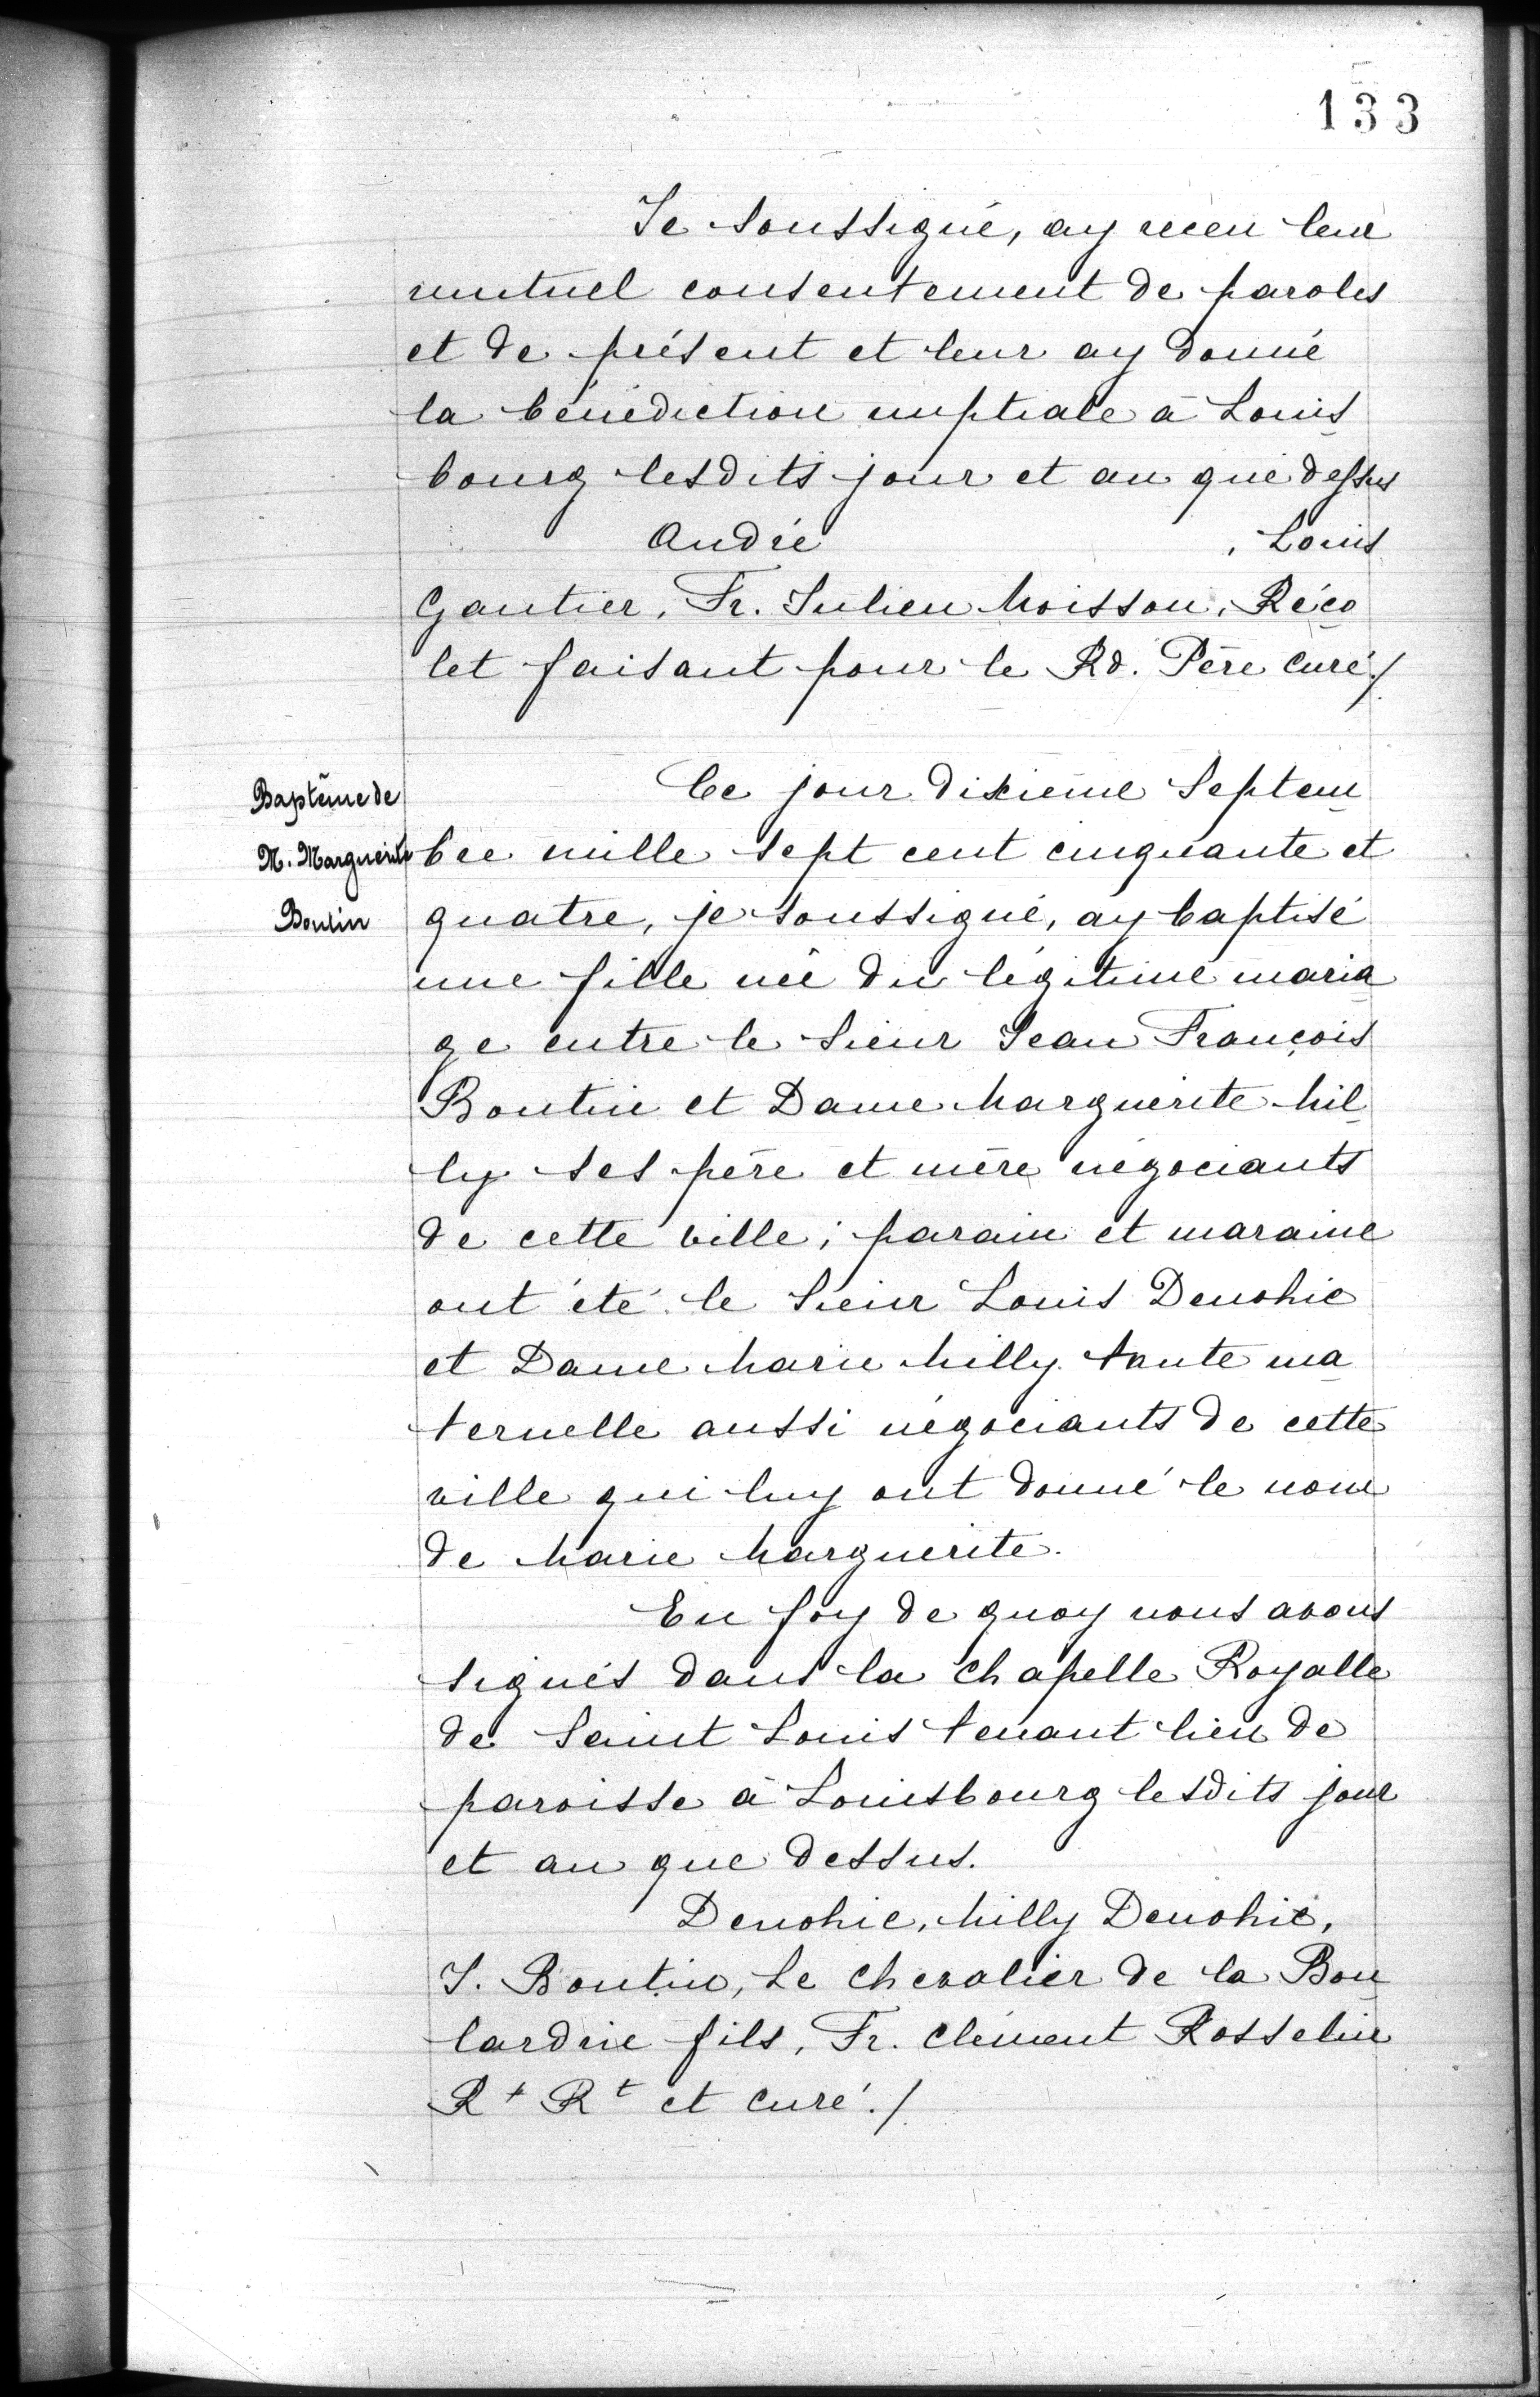 133
Je soussigné, ay receu leur
mutuel consentement de paroles
et de présent et leur ay donné
la bénédiction nuptiale à Louis
bourg lesdits jour et an que dessus
André , Louis
Gautier, Fr. Julien Moisson, Réco
let faisant pour le Rd. Père curé./
Baptême de
M. Marguerite
Boutin
Ce jour dixième Septem
bre mille sept cent cinquante et
quatre, je soussigné, ay baptisé
une fille née du légitime maria
ge entre le Sieur Jean François
Boutin et Dame Marguerite Mil
ly ses père et mère négociants
de cette ville; parain et maraine
ont été le Sieur Louis Denohic
et Dame Marie Milly tante ma
ternelle aussi négociants de cette
ville qui luy ont donné le nom
de Marie Marguerite.
En foy de quoy nous avons
signés dans la chapelle Royalle
de Saint Louis tenant lieu de
paroisse à Louisbourg lesdits jour
et an que dessus.
Denohic, Milly Denohic,
J. Boutin, Le chevalier de la Bou
lardrie fils, Fr. Clément Rosselin
Rt Rt et curé./